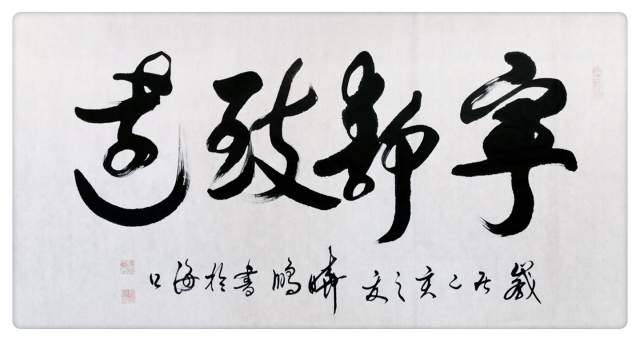 寧靜致遠
歲在乙亥之夏曄鵬書於海口